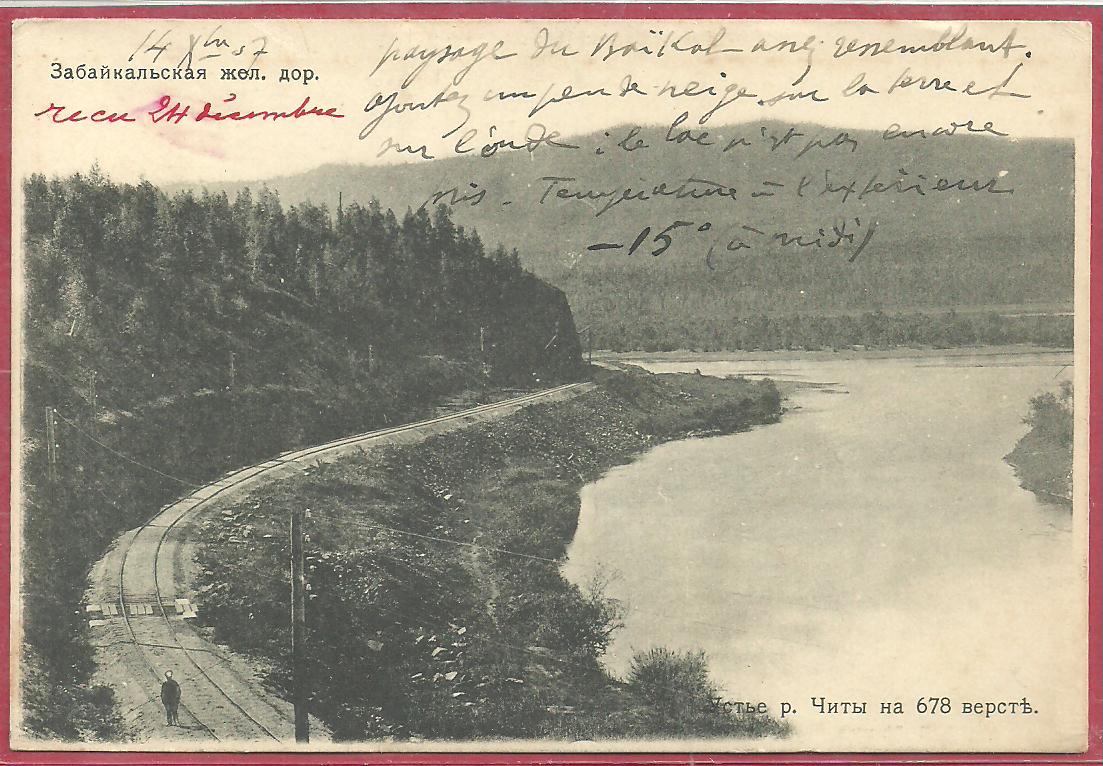 14 Xbre 07
Забайкальская жел. дор.
recu 24 décembre
paysage du Baïkal assez ressemblant.
ajoutez un peu de neige sur la terre et
sur l'onde ; le lac n'est pas encore
pris. Température à l'extérieur
-15° (à midi)
Устье р. Читы на 678 верстѣ.